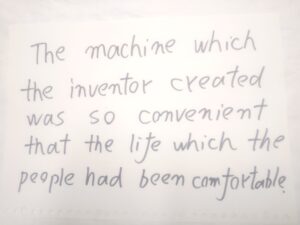 The machine which
the inventor created
was so convenient
that the life which the
people had been comfortable.